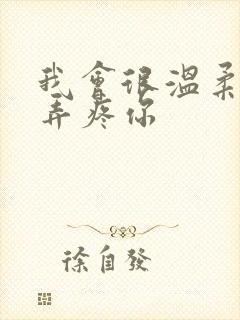 我會很溫柔
弄疼你
徐自發